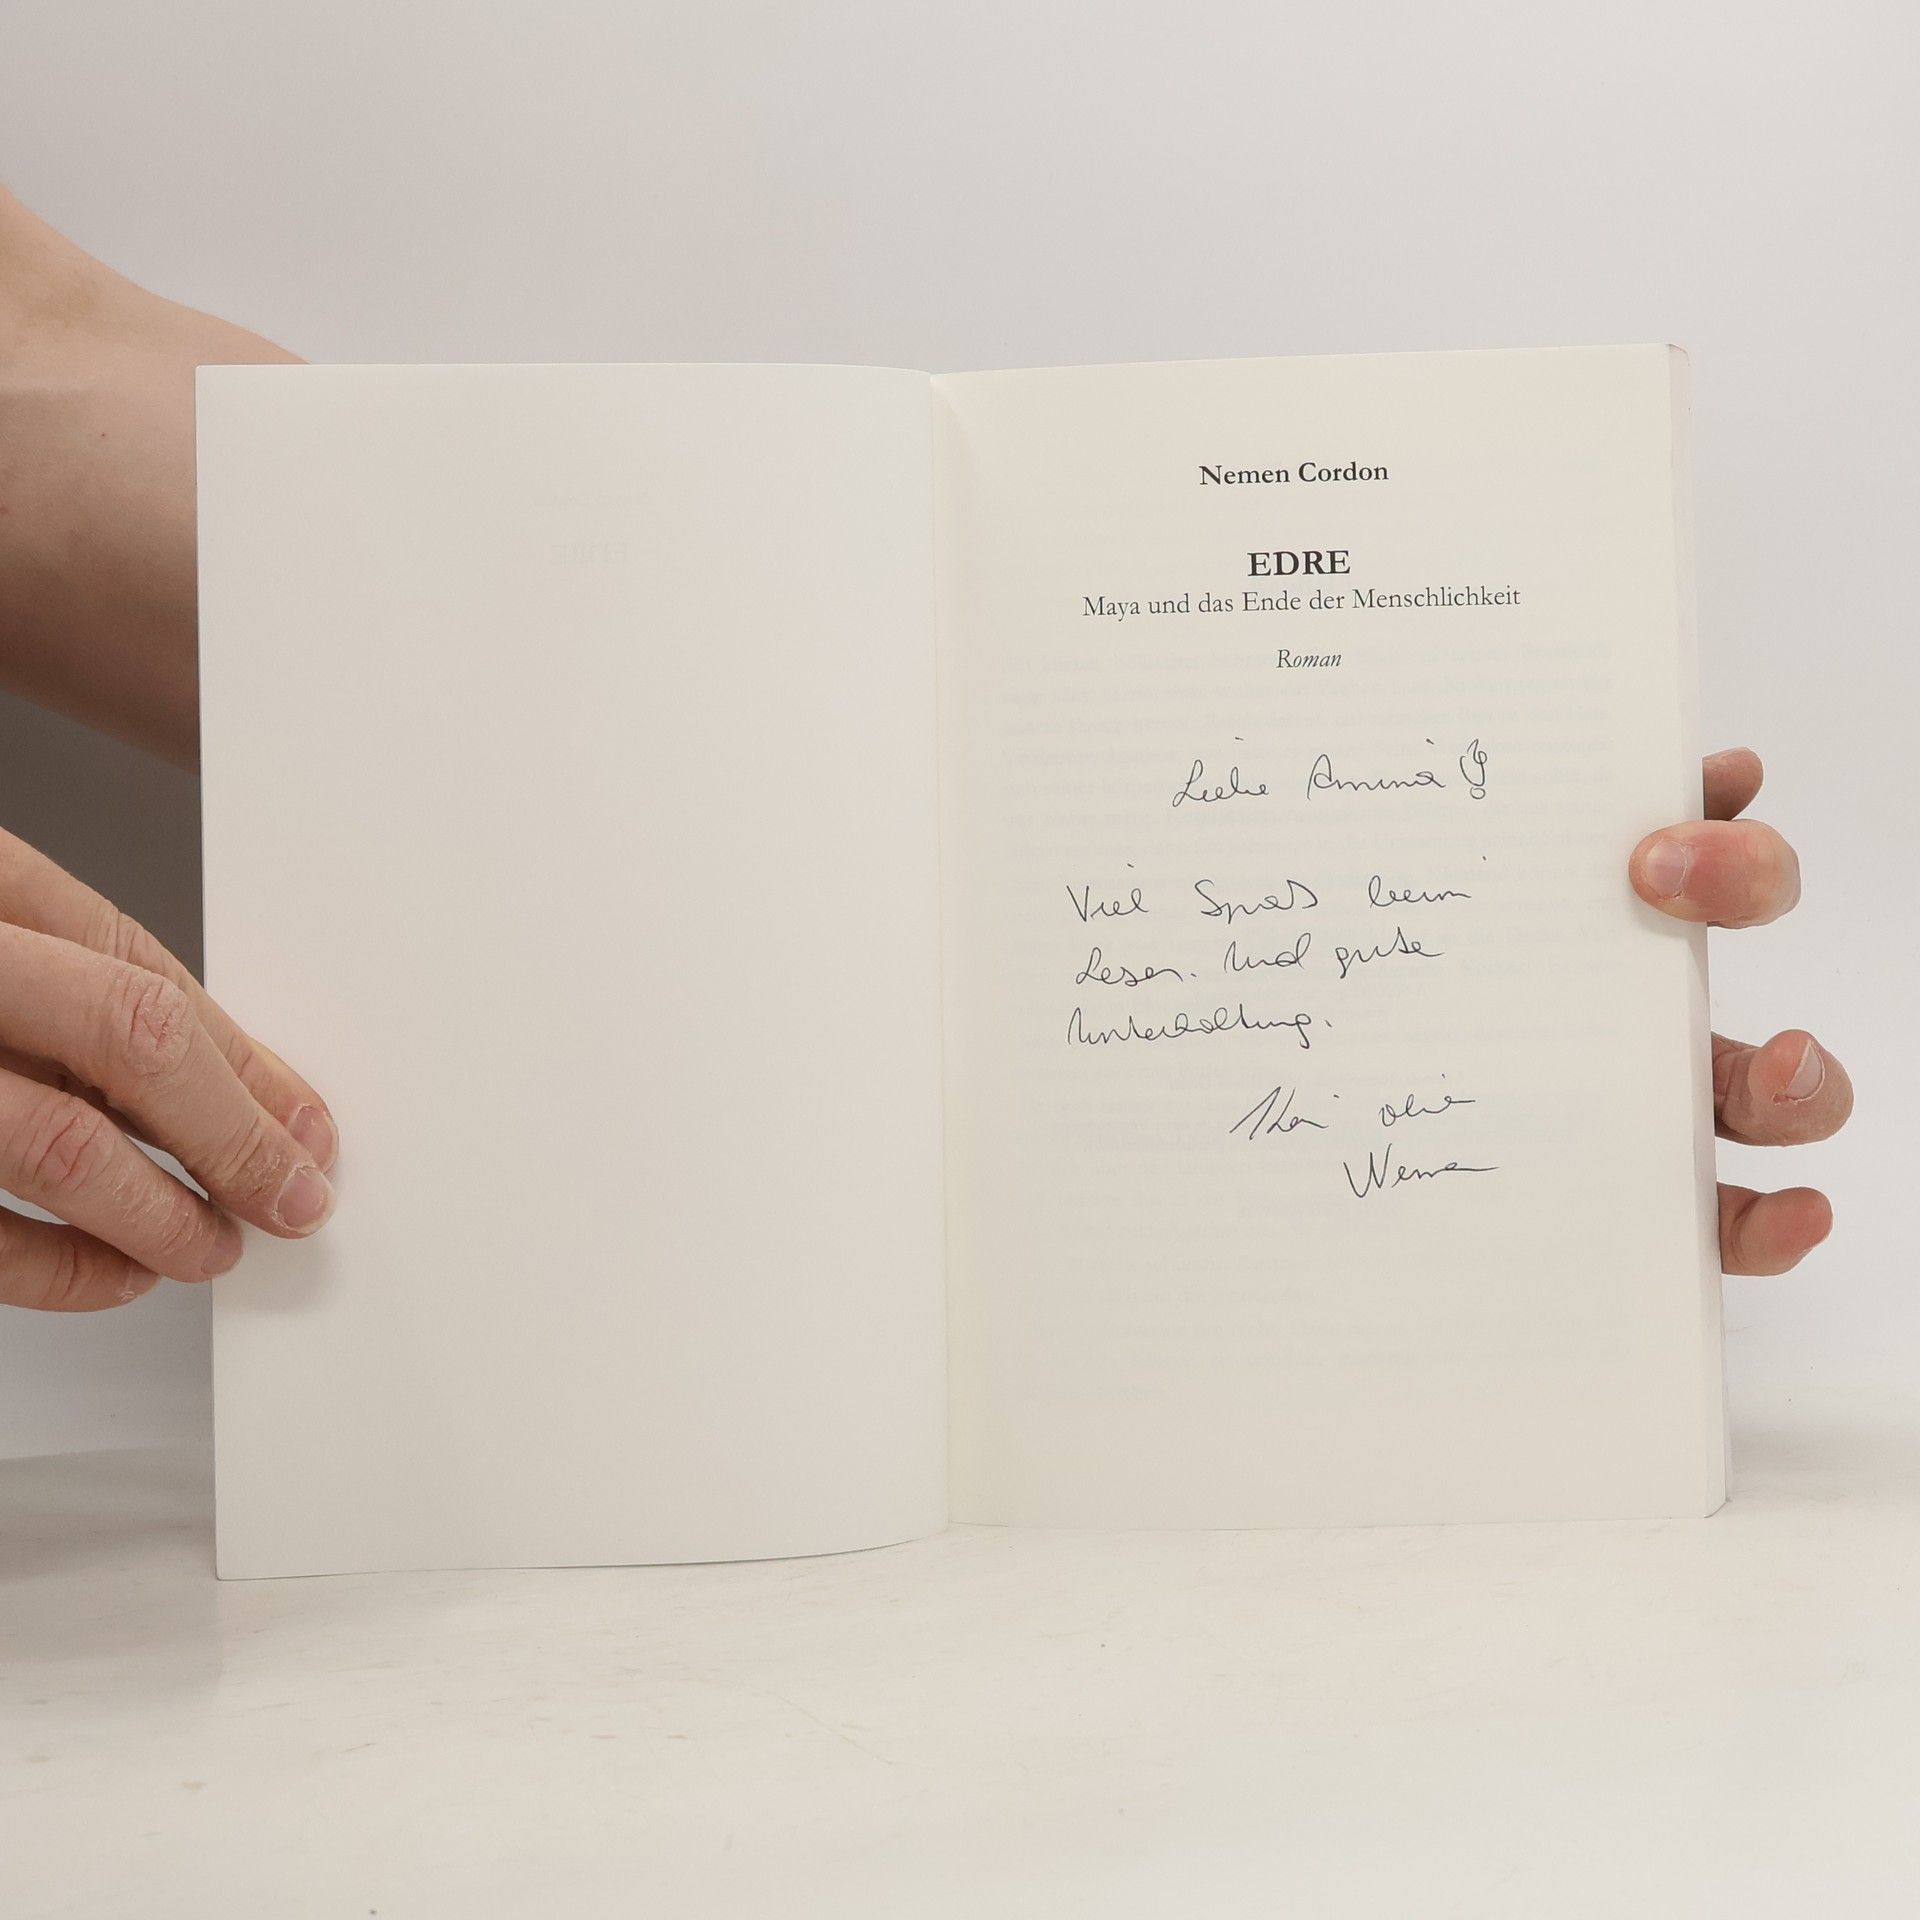 Nemen Cordon
EDRE
Maya und das Ende der Menschlichkeit
Roman
Liebe Amina!
Viel Spaß beim
Lesen. Und gute
Unterhaltung.